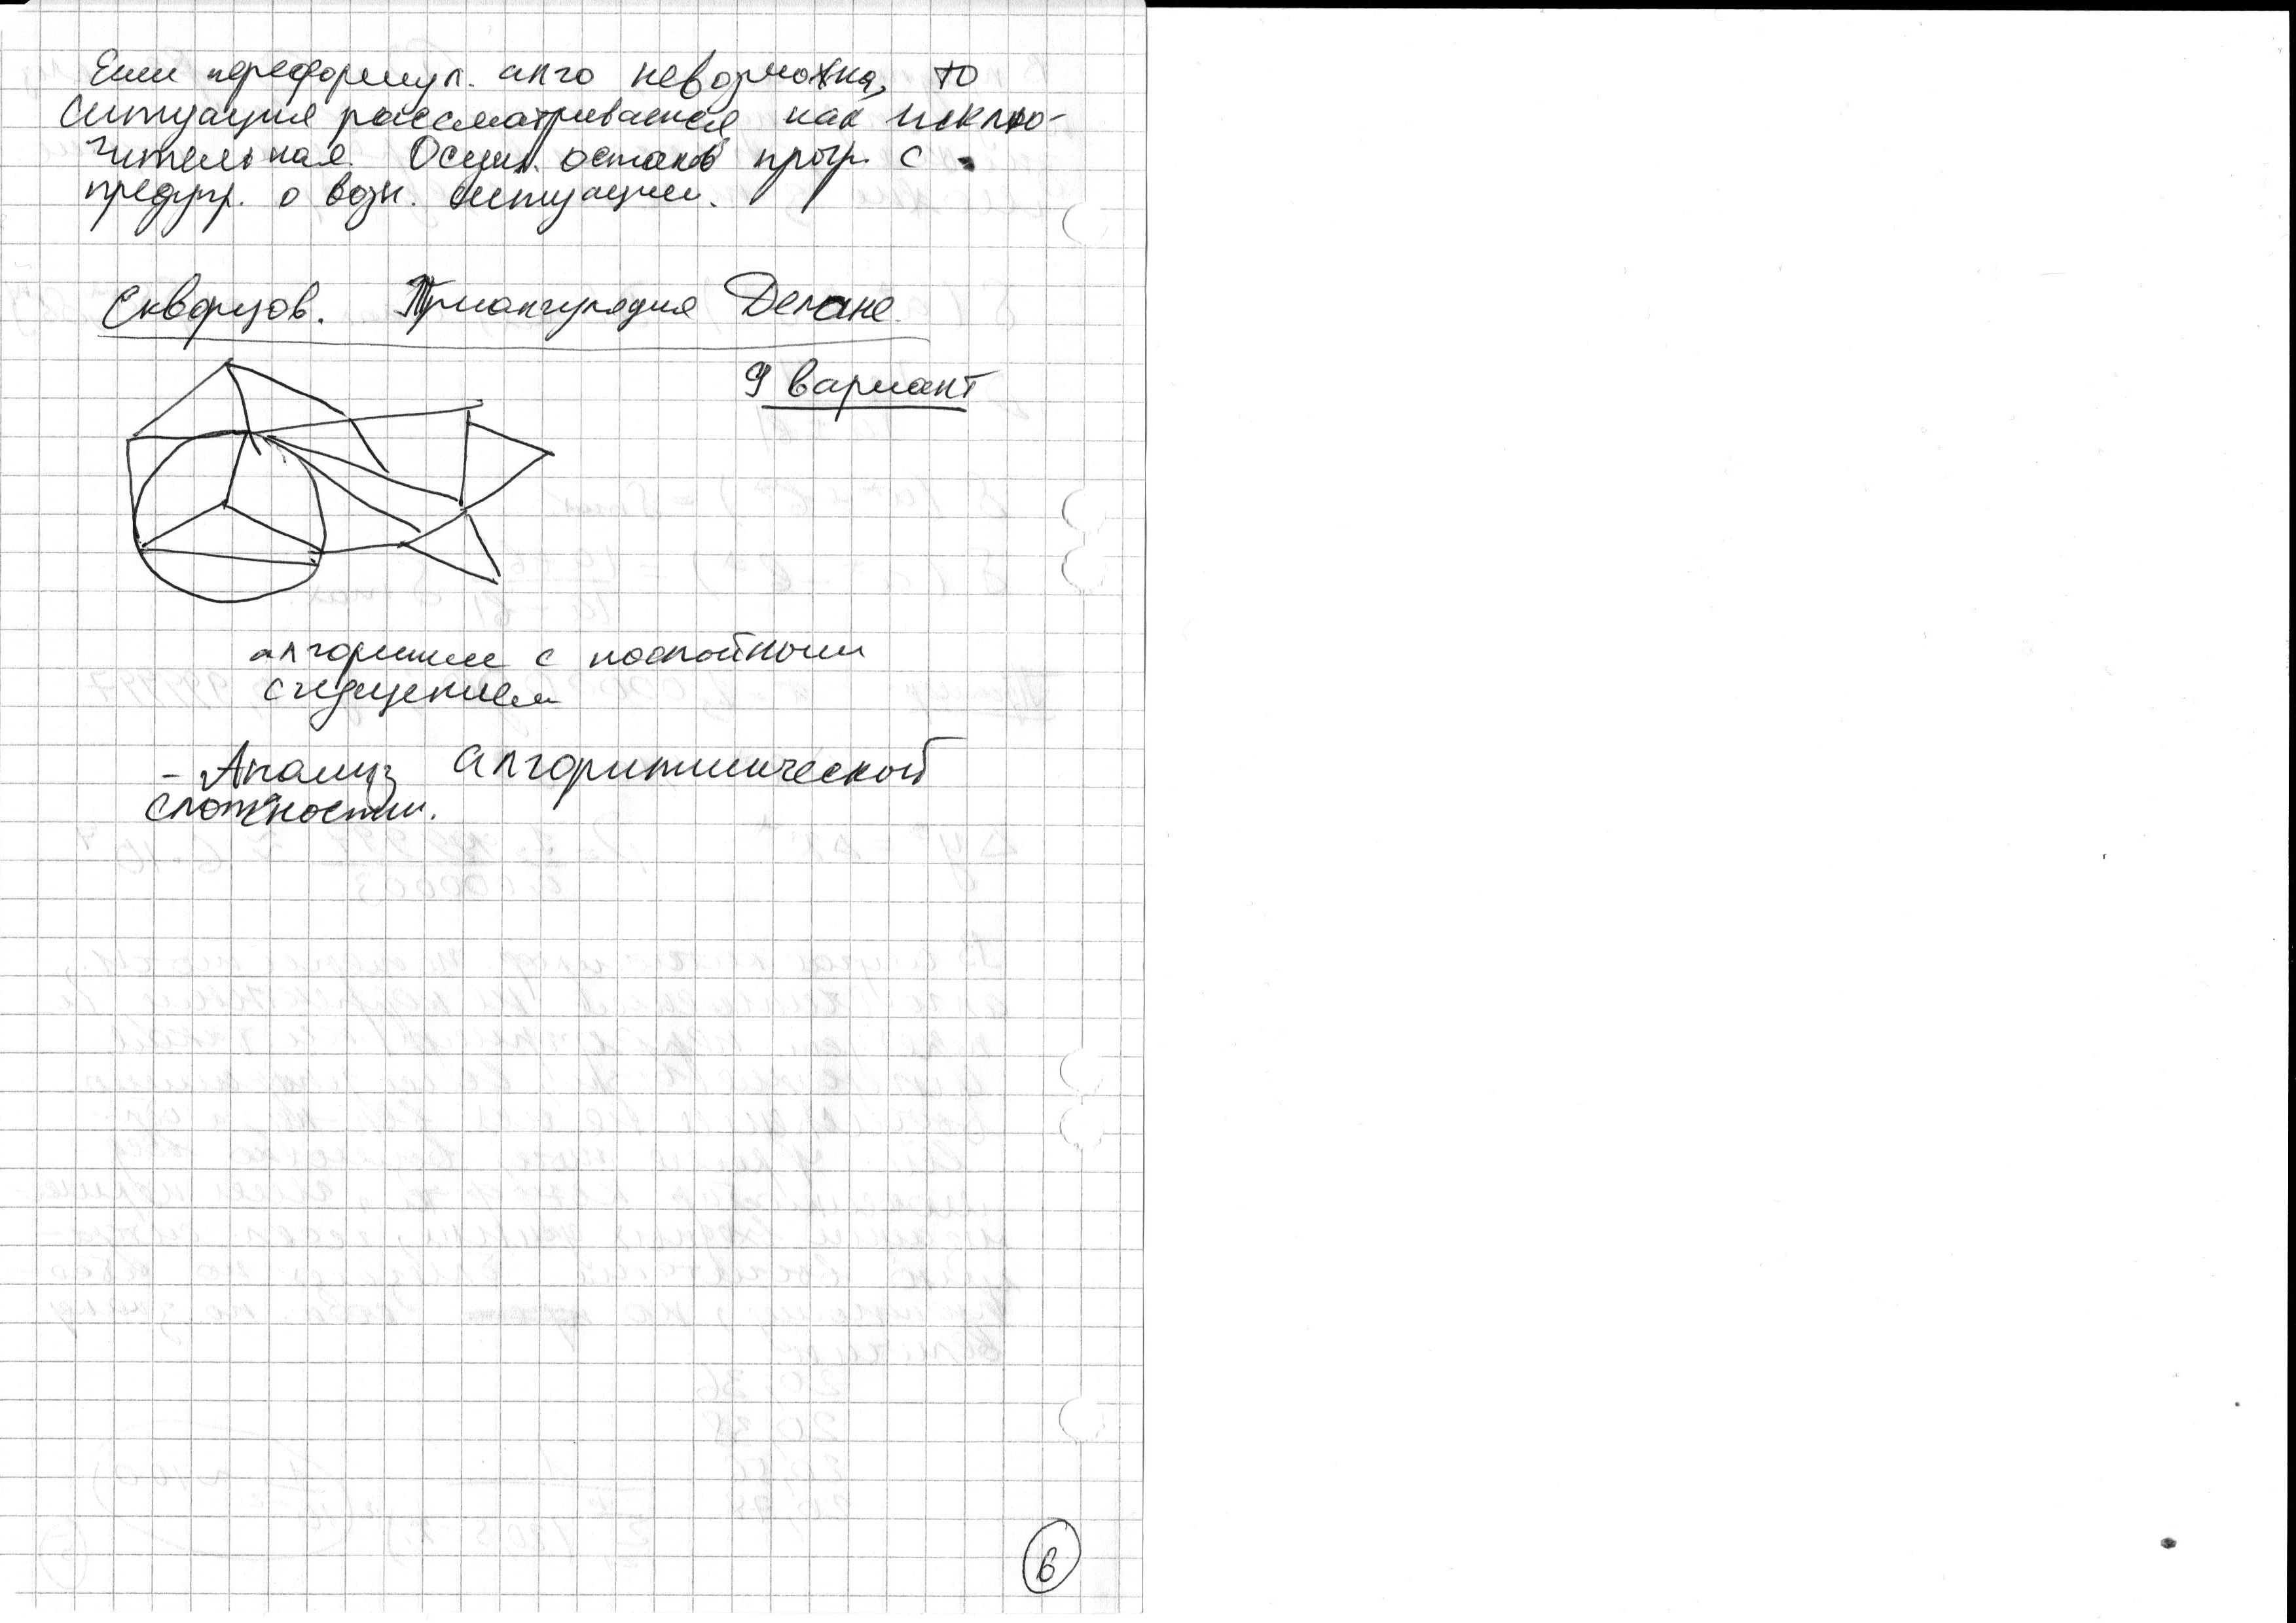 Если переформул. алго невозможна, то
ситуация рассматривается как исклю-
чительная. Осущ. останов прогр. с
предупр. о возн. ситуации.
Скворцов. Триангуляция Делоне.
9 вариант
алгоритм с послойным
сгущением
- Анализ алгоритмической
сложности.
6